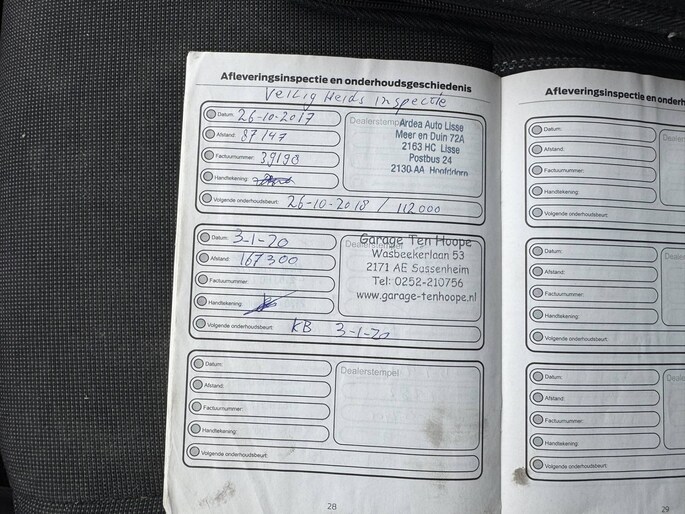 Afleveringsinspectie en onderhoudsgeschiedenis
Veiligheids inspectie
Datum: 26-10-2017
Afstand: 87147
Factuurnummer: 39190
Handtekening:
Volgende onderhoudsbeurt: 26-10-2018 / 112000
Dealerstempel
Ardea Auto Lisse
Meer en Duin 72A
2163 HC Lisse
Postbus 24
2130 AA Hoofddorp
Datum: 3-1-20
Afstand: 167300
Factuurnummer:
Handtekening:
Volgende onderhoudsbeurt: KB 3-1-20
Dealerstempel
Garage Ten Hoope
Wasbeekerlaan 53
2171 AE Sassenheim
Tel: 0252-210756
www.garage-tenhoope.nl
Datum:
Afstand:
Factuurnummer:
Handtekening:
Volgende onderhoudsbeurt:
Dealerstempel
28
Afleveringsinspectie en onderh
Datum:
Afstand:
Factuurnummer:
Handtekening:
Volgende onderhoudsbeurt:
Dealers
Datum:
Afstand:
Factuurnummer:
Handtekening:
Volgende onderhoudsbeurt:
Dealer
Datum:
Afstand:
Factuurnummer:
Handtekening:
Volgende onderhoudsbeurt:
Deale
29